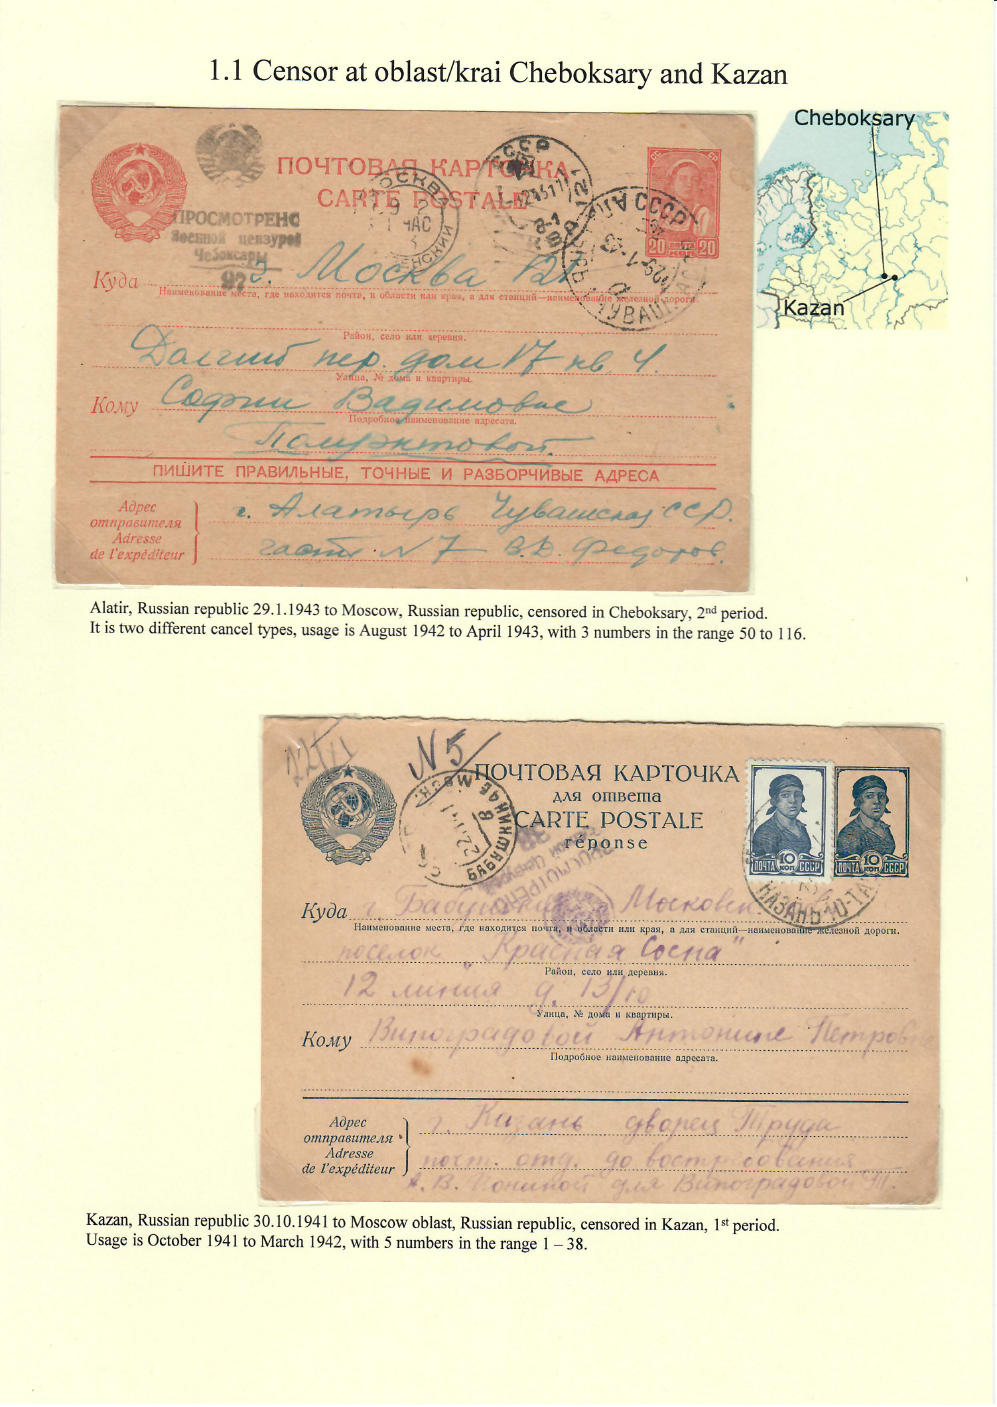 1.1 Censor at oblast/krai Cheboksary and Kazan
Cheboksary
Kazan
ПОЧТОВАЯ КАРТОЧКА
CARTE POSTALE
ПРОСМОТРЕНО
Военной цензурой
Чебоксары
СССР
МОСКВА
20 20
Куда г. Москва 121
Наименование места, где находится почта, и области или края, а для станций—наименование железной дороги
Район, село или деревня.
Долгий пер. дом 17 кв. 4.
Улица, № дома и квартиры.
Кому Софии Вадимовне
Подробное наименование адресата.
Полуэктовой.
ПИШИТЕ ПРАВИЛЬНЫЕ, ТОЧНЫЕ И РАЗБОРЧИВЫЕ АДРЕСА
Адрес отправителя
Adresse de l'expéditeur
г. Алатырь Чувашская ССР.
часть N 7 В.В. Федоров.
Alatir, Russian republic 29.1.1943 to Moscow, Russian republic, censored in Cheboksary, 2nd period.
It is two different cancel types, usage is August 1942 to April 1943, with 3 numbers in the range 50 to 116.
N 5
ПОЧТОВАЯ КАРТОЧКА
для ответа
CARTE POSTALE
réponse
ПРОСМОТРЕНО
ПОЧТА 10 КОП. СССР
ПОЧТА 10 КОП. СССР
Куда г. Бабушкин Московск.
Наименование места, где находится почта, и области или края, а для станций—наименование железной дороги.
поселок „Красная Сосна"
Район, село или деревня.
12 линия д. 13/10
Улица, № дома и квартиры.
Кому Виноградовой Антонине Петровне
Подробное наименование адресата.
Адрес отправителя
Adresse de l'expéditeur
г. Казань дворец Труда
почт. отд. до востребования
для Виноградовой Т.
Kazan, Russian republic 30.10.1941 to Moscow oblast, Russian republic, censored in Kazan, 1st period.
Usage is October 1941 to March 1942, with 5 numbers in the range 1 – 38.